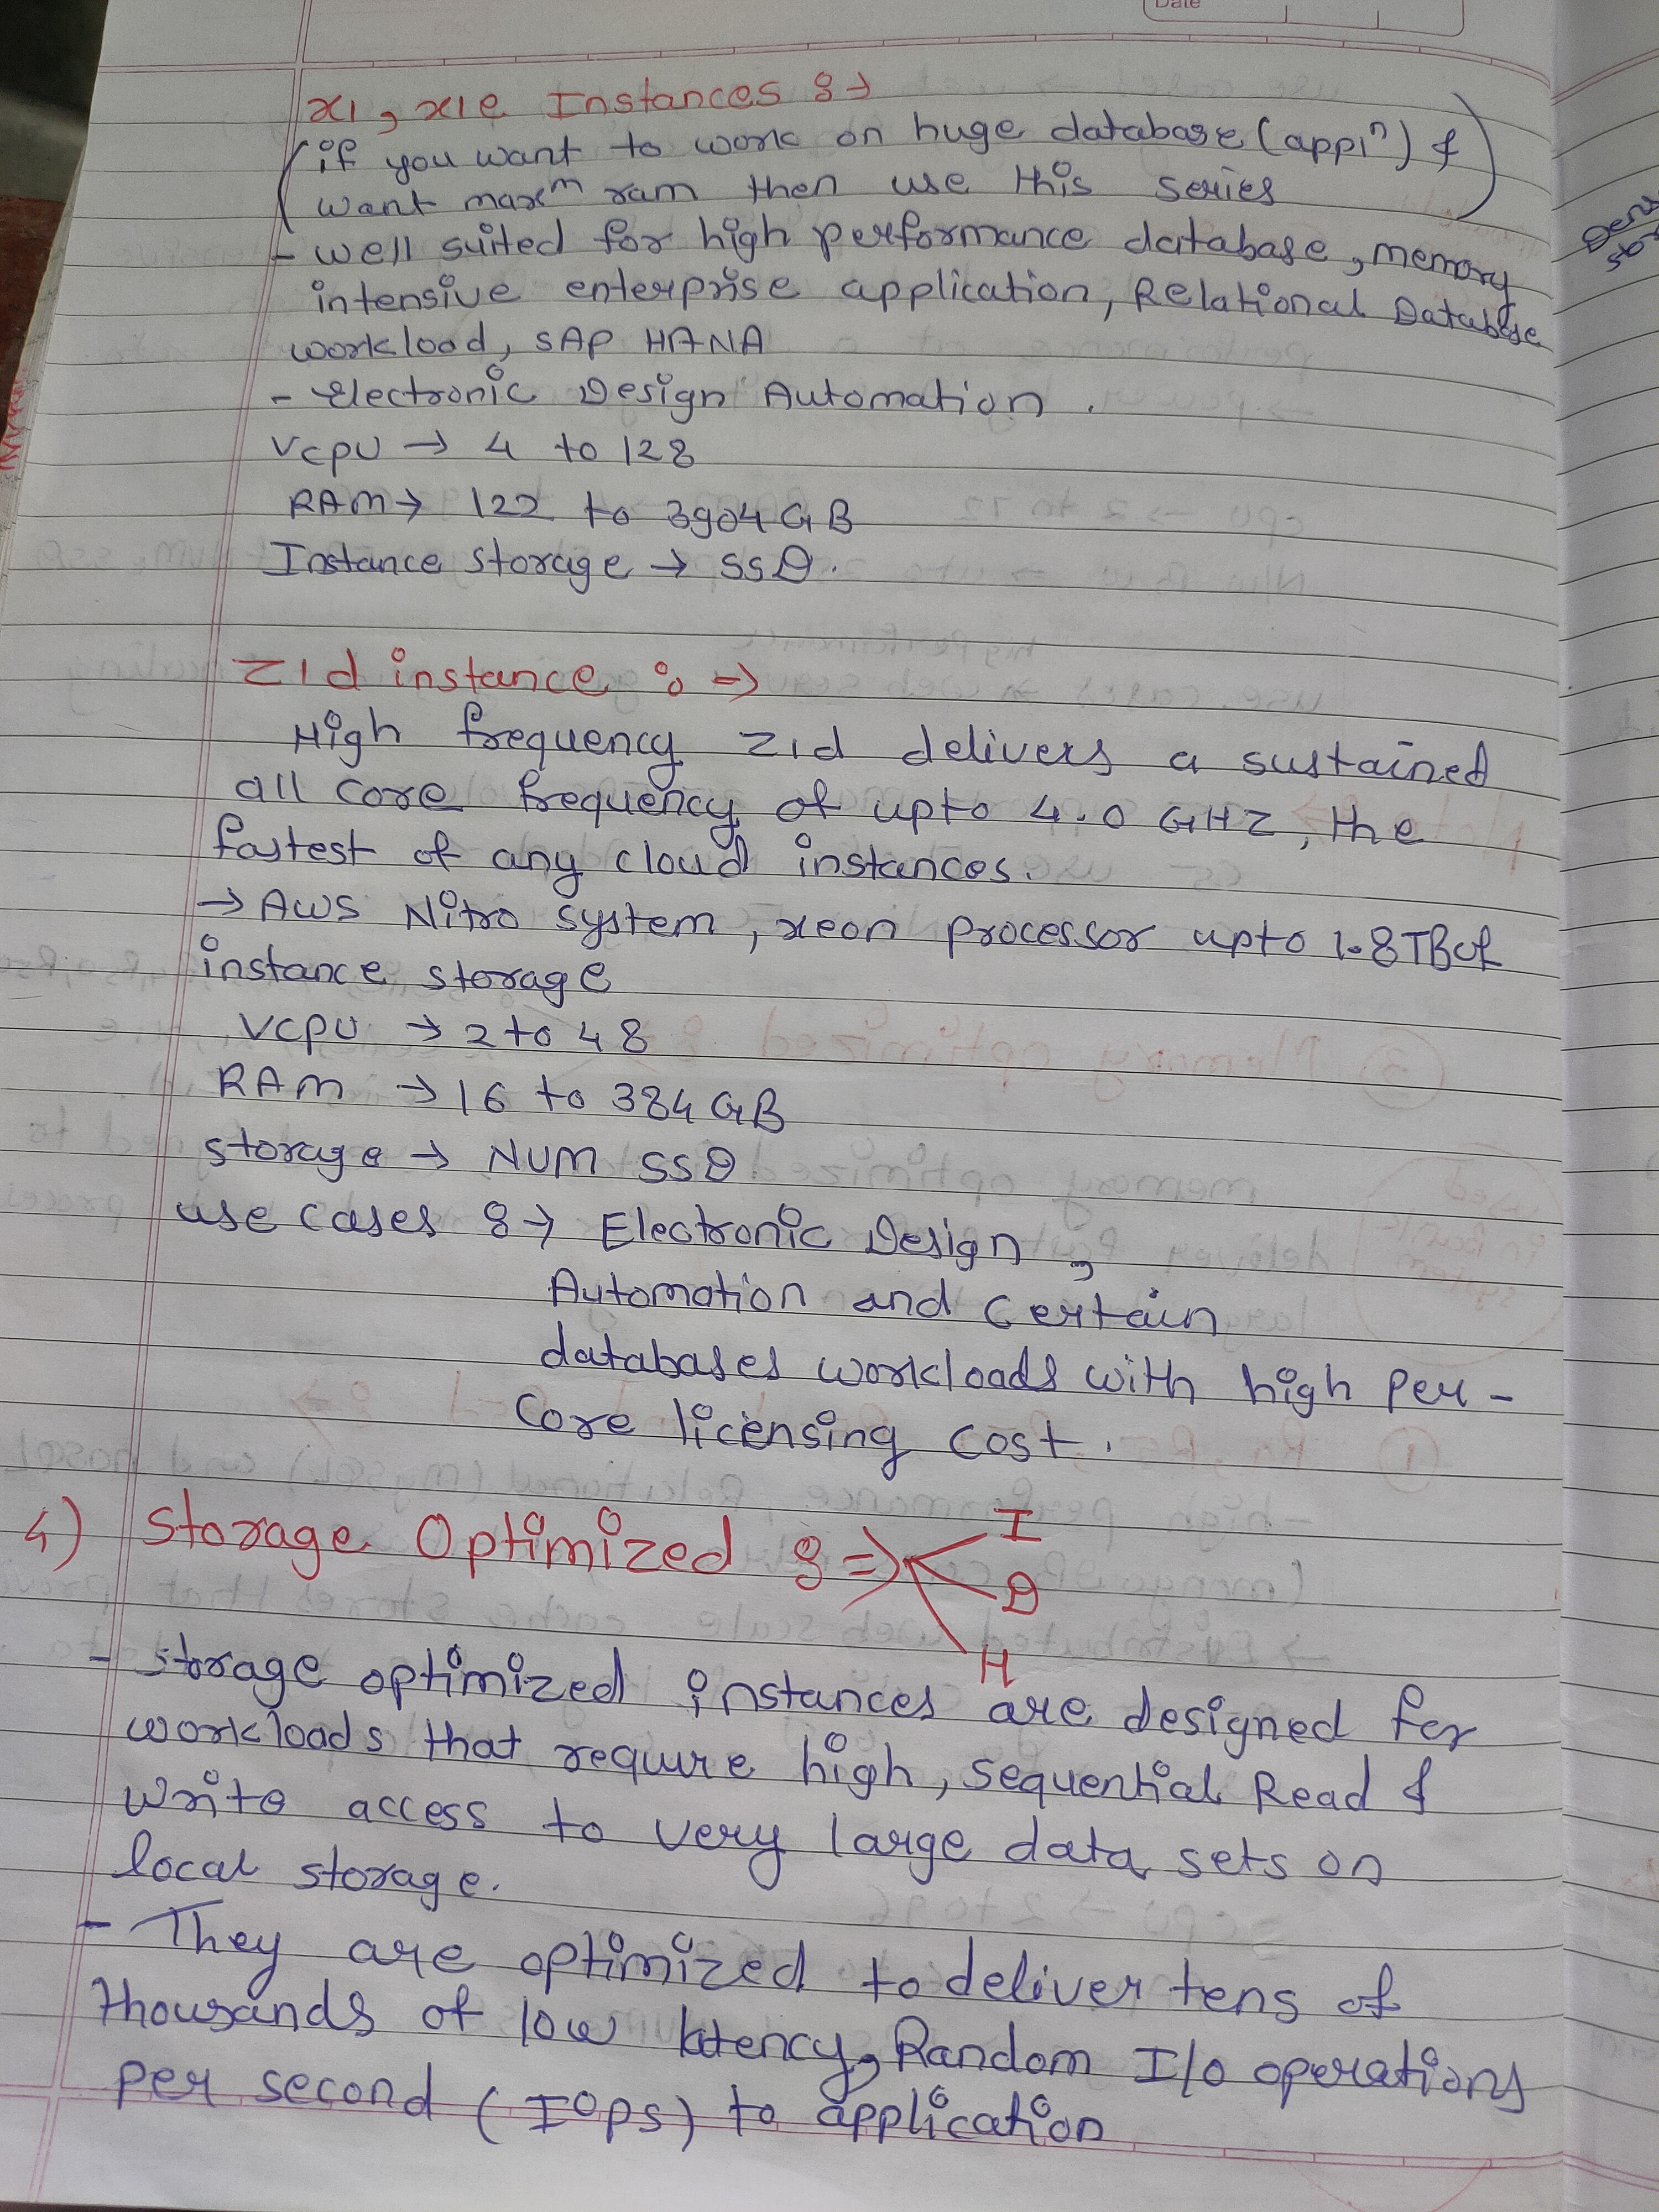 Date
x1, x1e Instances :→
(if you want to work on huge database (appiⁿ) &
want maxᵐ ram then use this series)
- well suited for high performance database, memory
intensive enterprise application, Relational Database
workload, SAP HANA
- Electronic Design Automation.
Vcpu → 4 to 128
RAM → 122 to 3904 GB
Instance storage → SSD.
Z1d instance :⇒
High frequency z1d delivers a sustained
all core frequency of upto 4.0 GHZ, the
fastest of any cloud instances.
→ AWS Nitro system, xeon processor upto 1.8TB of
instance storage
Vcpu → 2 to 48
RAM → 16 to 384 GB
storage → NUM SSD
use cases :→ Electronic Design,
Automation and certain
databases workloads with high per-
core licensing cost.
4) Storage Optimized :⇒ I
D
H
- storage optimized instances are designed for
workloads that require high, sequential Read &
write access to very large data sets on
local storage.
- They are optimized to deliver tens of
thousands of low latency, Random I/O operations
per second (IOPS) to application